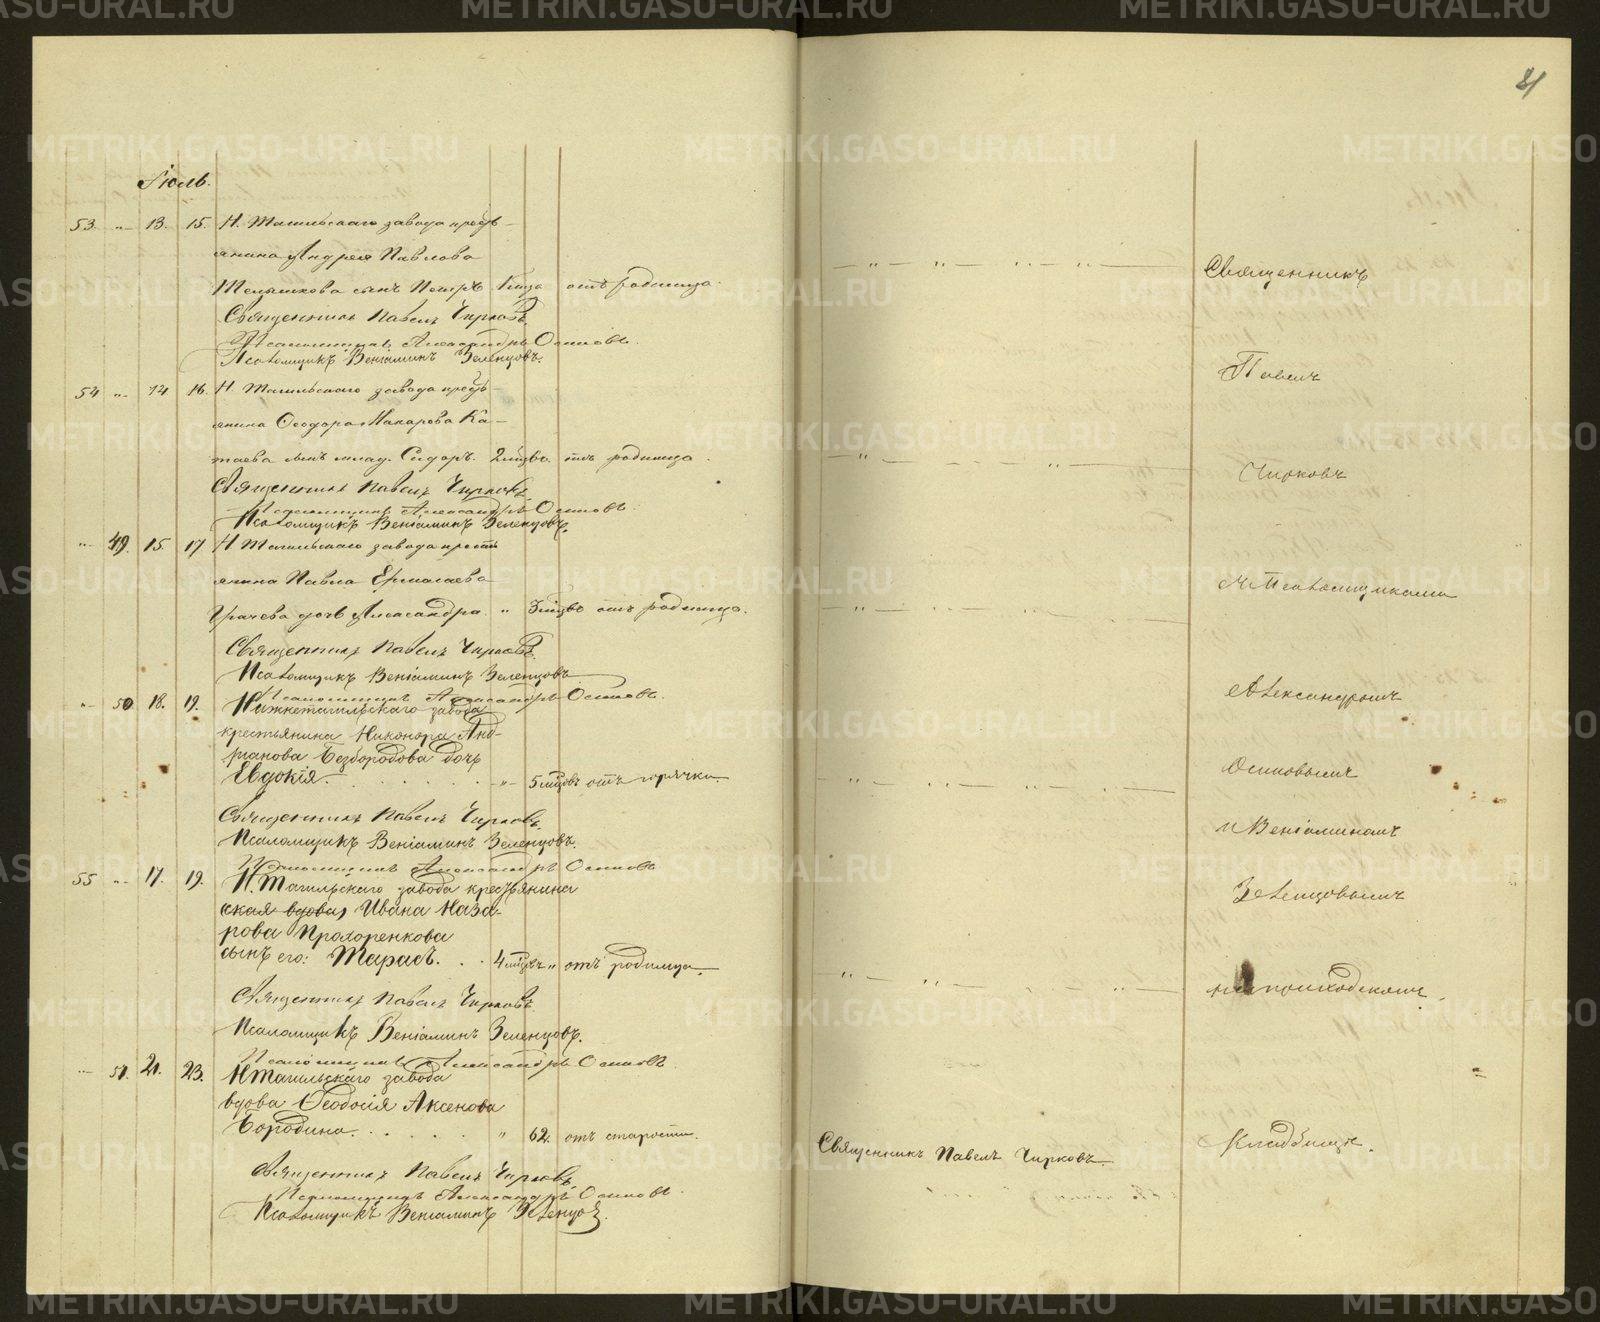 METRIKI.GASO-URAL.RU
81
Іюль.
53. " 13. 15. Н. Тагильскаго завода кресть-
янина Андрея Павлова
Меньшкова сынъ Петръ 1 года отъ родимца.
Священникъ Павелъ Чирковъ.
Псаломщикъ Александръ Осиповъ.
Псаломщикъ Веніаминъ Зеленцовъ.
54 " 14 16. Н. Тагильскаго завода кресть-
янина Ѳеодора Макарова Ка-
таева сынъ млад. Сидоръ. 2 мцвъ отъ родимца.
Священникъ Павелъ Чирковъ.
Псаломщикъ Александръ Осиповъ.
Псаломщикъ Веніаминъ Зеленцовъ.
" 49. 15. 17 Н. Тагильскаго завода кресть
янина Павла Ермолаева
Грачева дочь Александра. " 3 мцвъ отъ родимца.
Священникъ Павелъ Чирковъ.
Псаломщикъ Веніаминъ Зеленцовъ
Псаломщикъ Александръ Осиповъ.
" 50 18. 19. Нижнетагильскаго завода
крестьянина Никонора Анд-
рианова Безбородова дочь
Евдокія. " 5 мцовъ отъ горячки.
Священникъ Павелъ Чирковъ.
Псаломщикъ Веніаминъ Зеленцовъ.
Псаломщикъ Александръ Осиповъ
55 " 17. 19. Н. Тагильскаго завода крестьянина
(ская вдова) Ивана Наза-
рова Прохоренкова
сынъ его: Тарасъ. 4 мцвъ " отъ родимца.
Священникъ Павелъ Чирковъ.
Псаломщикъ Веніаминъ Зеленцовъ.
Псаломщикъ Александръ Осиповъ.
" 51. 21. 23. Н Тагильскаго завода
вдова Ѳеодосія Аксенова
Бородина. " 62. отъ старости.
Священникъ Павелъ Чирковъ.
Псаломщикъ Александръ Осиповъ.
Псаломщикъ Веніаминъ Зеленцовъ.
Священникъ Павелъ Чирковъ.
Священникъ
Павелъ
Чирковъ
съ Псаломщиками
Александромъ
Осиповымъ
и Веніаминомъ
Зеленцовымъ
на приходскомъ
Кладбищѣ.